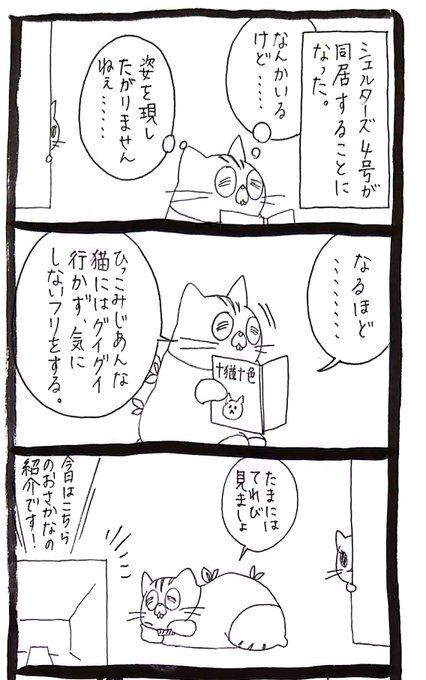 シェルターズ4号が
同居することに
なった。
なんかいる
けど……
姿を現し
たがりません
ねぇ……
なるほど
………
十猫十色
ひっこみじあんな
猫にはグイグイ
行かず、気に
しないフリをする。
たまには
てれび
見ましょ
今日はこちら
のおさかなの
紹介です!